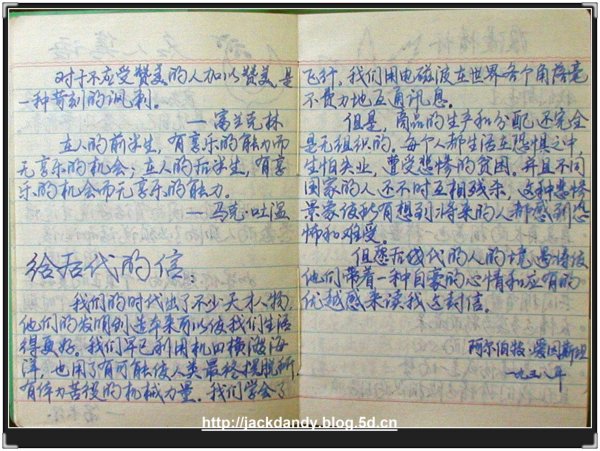 对于不应受赞美的人加以赞美,是
一种苛刻的讽刺。
—富兰克林
在人的前半生,有享乐的能力而
无享乐的机会;在人的后半生,有享
乐的机会而无享乐的能力。
—马克·吐温
给后代的信:
我们的时代出了不少天才人物,
他们的发明创造本来可以使我们生活
得更好。我们早已利用机器横渡海
洋,也用了有可能使人类最终摆脱所
有体力苦役的机械力量。我们学会了
飞行,我们用电磁波在世界各个角落毫
不费力地互通讯息。
但是,商品的生产和分配还完全
是无组织的。每个人都生活在恐惧之中
生怕失业,遭受悲惨的贫困。并且不同
国家的人还不时互相残杀,这种悲惨
景象使所有想到将来的人都感到恐
怖和难受。
但愿后代的人的境遇将使
他们带着一种自豪的心情和应有的
优越感来读我这封信。
阿尔伯特·爱因斯坦
一九三八年
http://jackdandy.blog.5d.cn